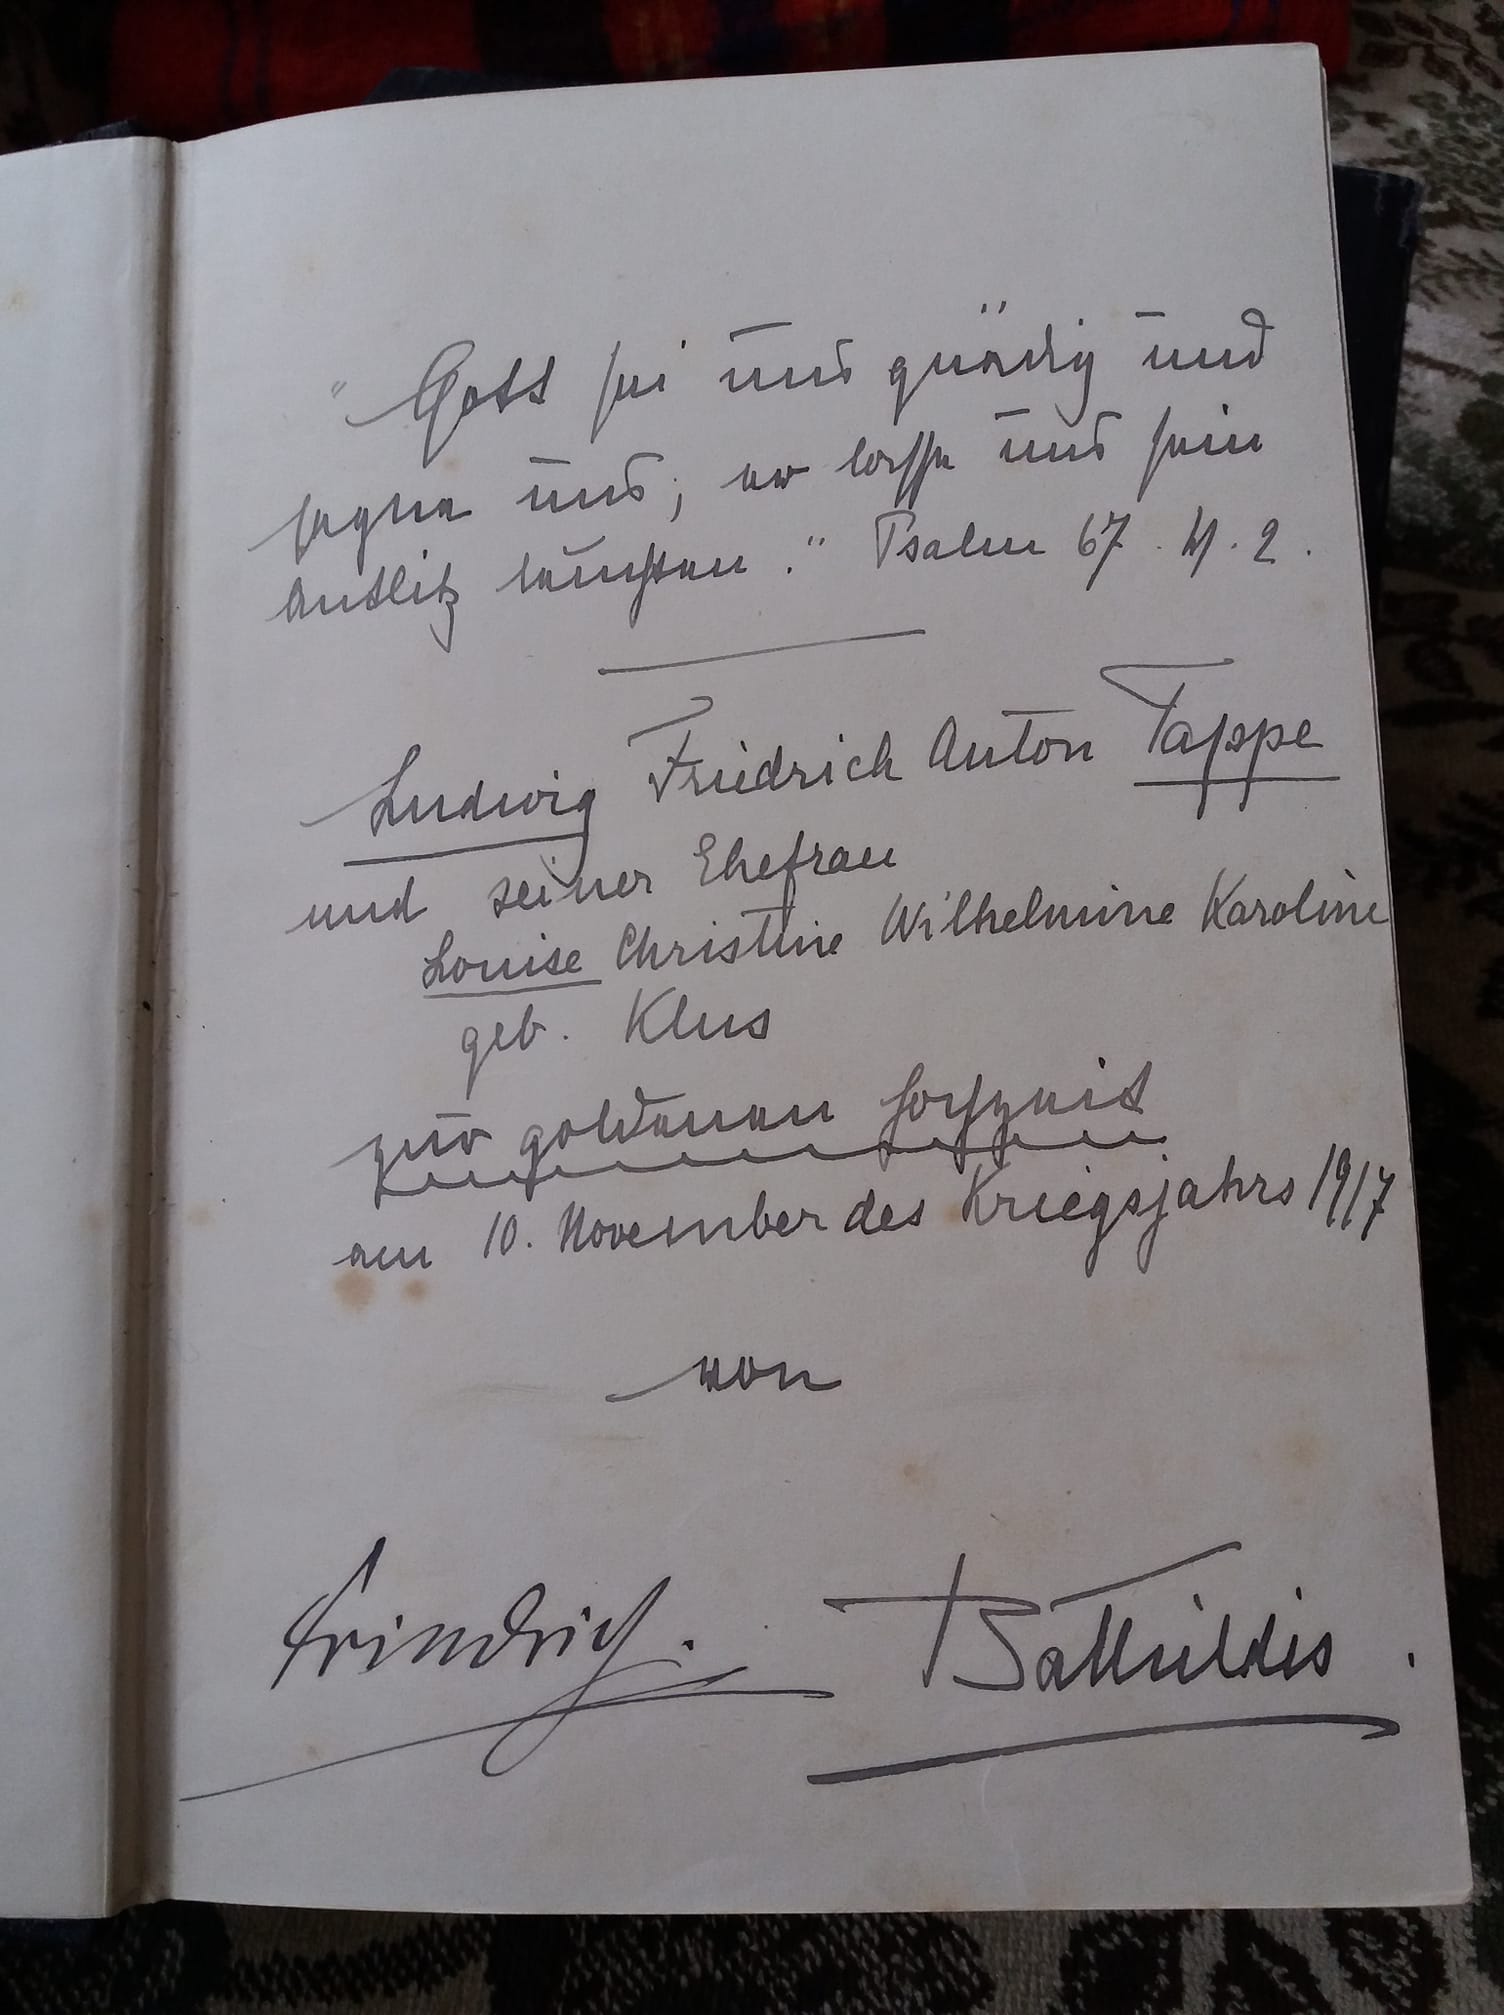 "Gott sei uns gnädig und
segne uns; er lasse uns sein
Antlitz leuchten." Psalm 67. V. 2.
Ludwig Friedrich Anton Tappe
und seiner Ehefrau
Louise Christine Wilhelmine Karoline
geb. Klus
zur goldenen Hochzeit
am 10. November des Kriegsjahrs 1917
von
Friedrich. Bathildis.